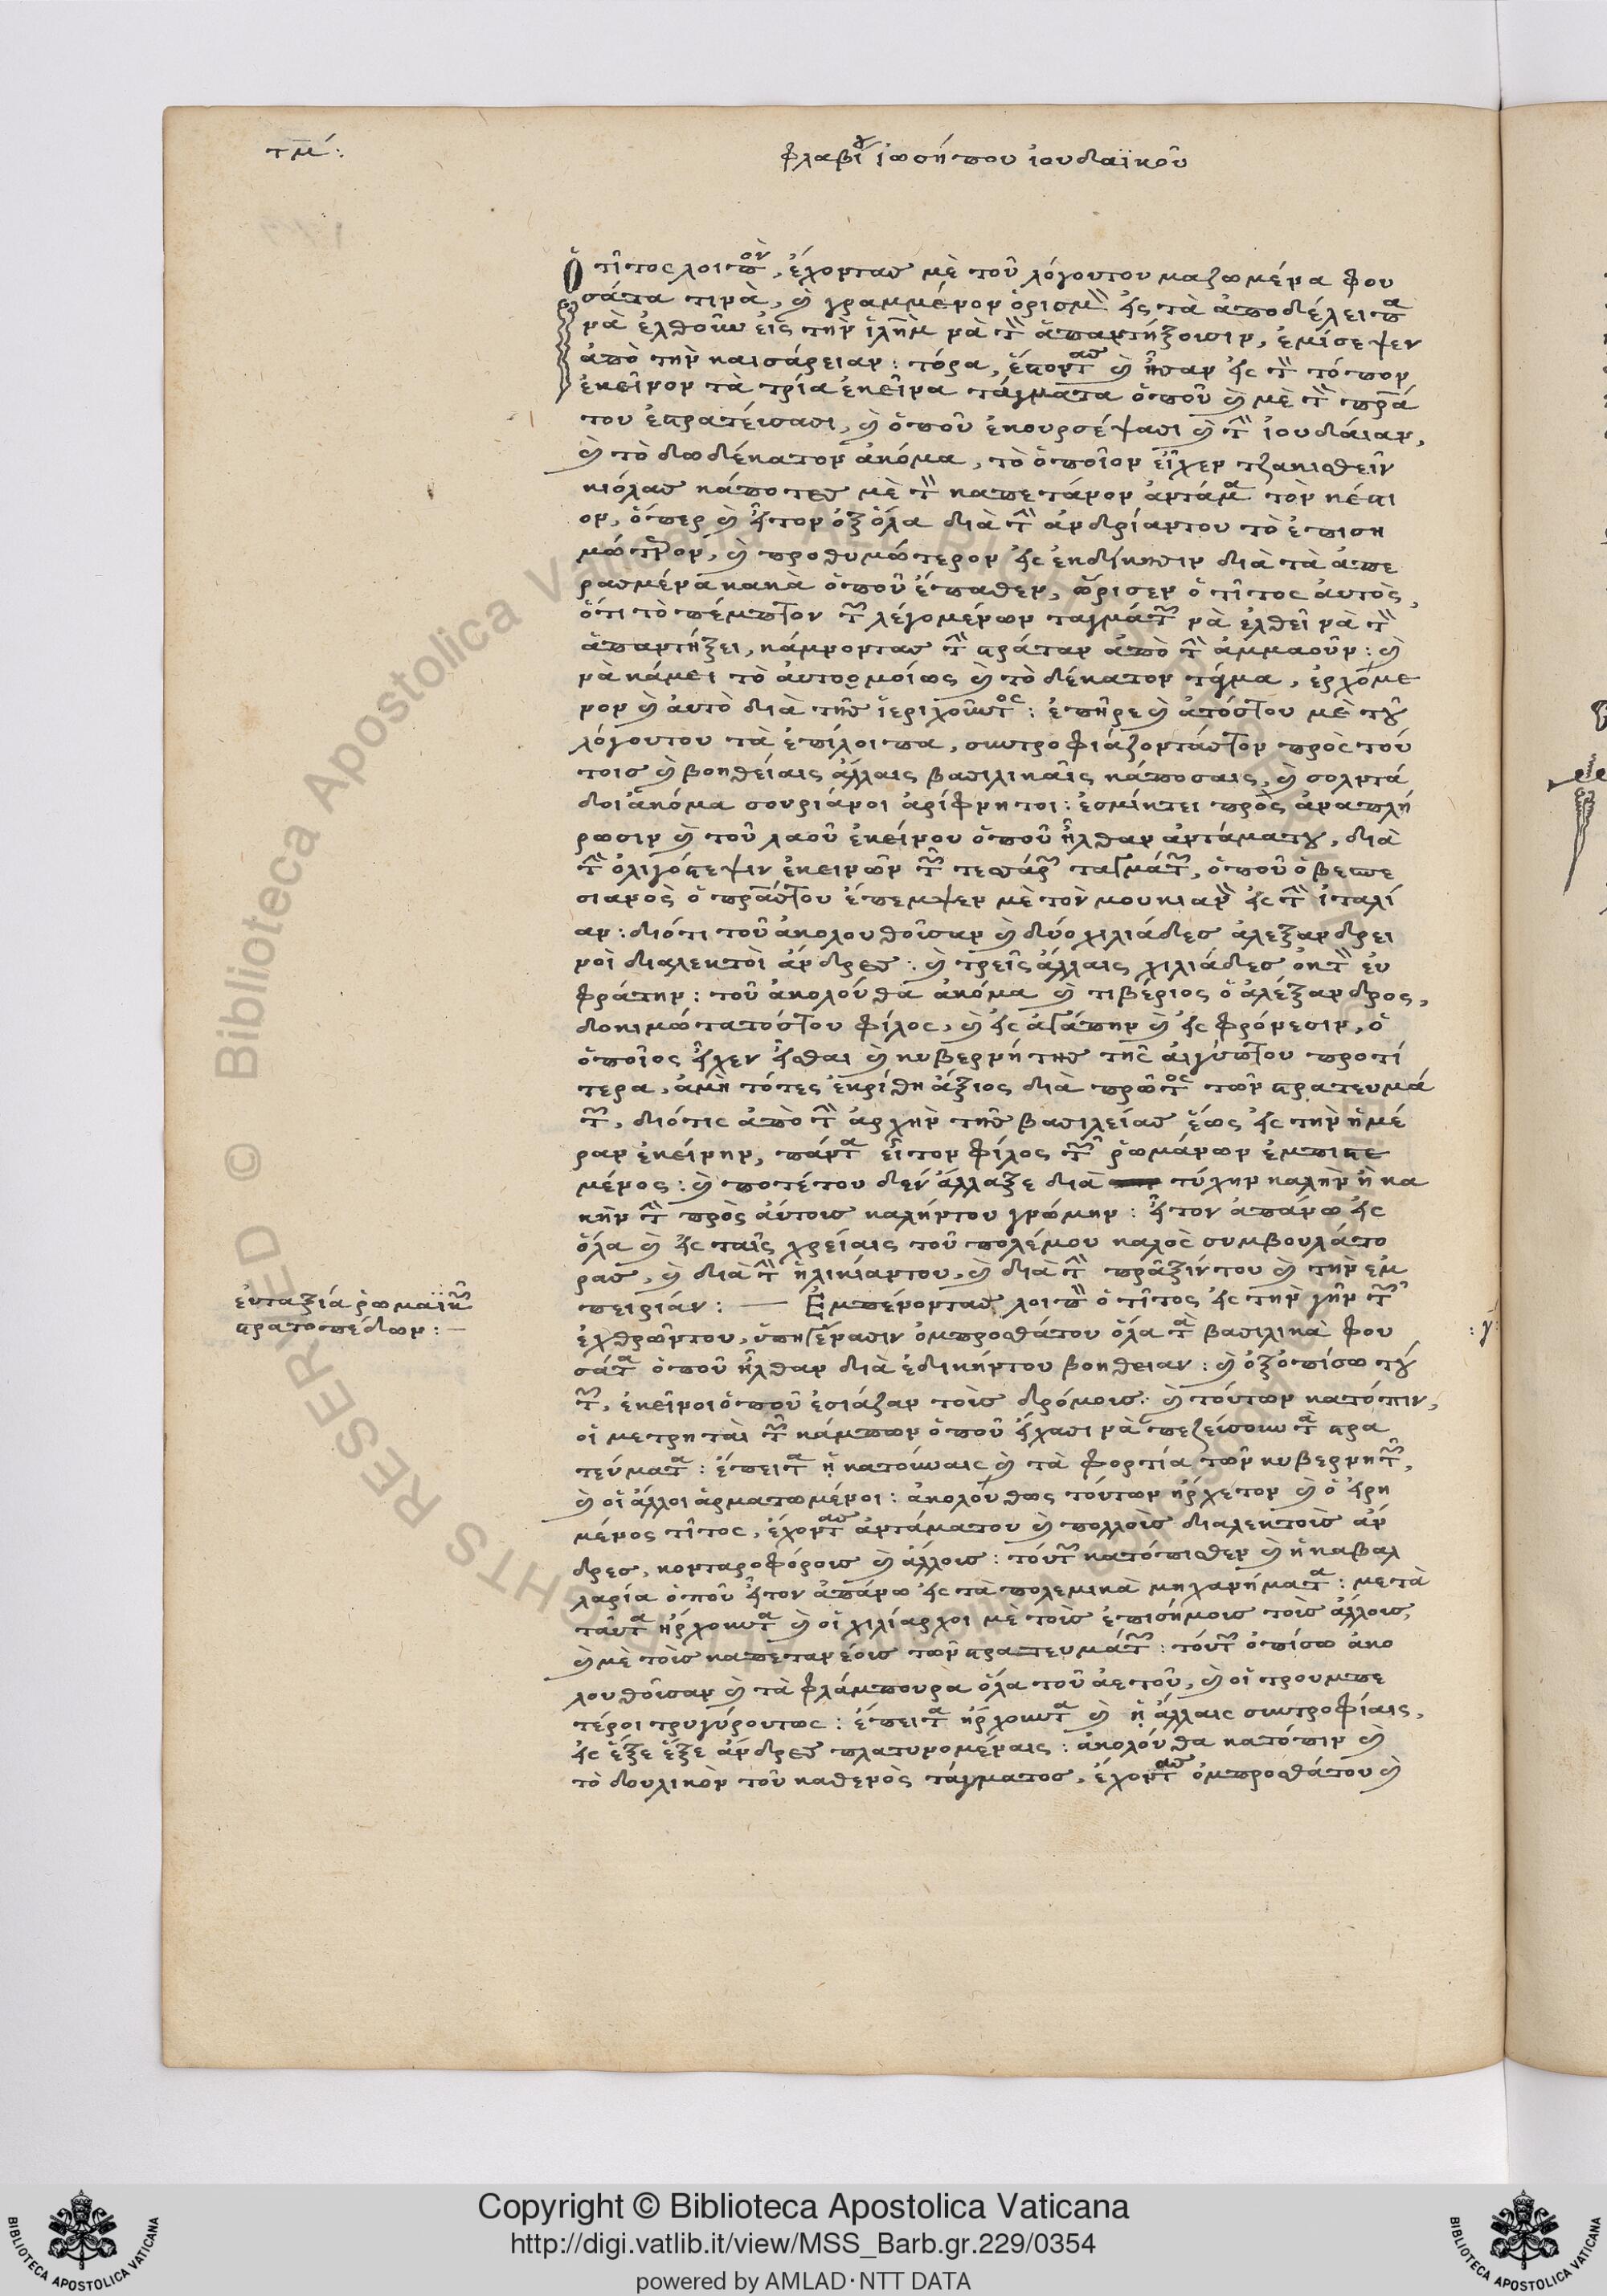 τμ´:
φλαβίου ἰωσήπου ἰουδαϊκοῦ
Ὁ τῖτος λοιπὸν, ἔχοντας μὲ τοῦ λόγουτου μαζωμένα φου
σάτα τινὰ, καὶ γραμμένον ὁρισμὸν εἰς τὰ ἀποδέλειπα
νὰ ἐλθοῦν εἰς τὴν ἱλῆμ νὰ τὸν ἀπαντήξουσιν, ἐμίσεψεν
ἀπὸ τὴν καισάρειαν: τόρα, ἔστοντας καὶ ἦσαν εἰς τὸν τόπον
ἐκεῖνον τὰ τρία ἐκεῖνα τάγματα ὁποῦ καὶ μὲ τὸν πρά
του ἐστρατεύσασι, καὶ ὁποῦ ἐκουρσέψασι καὶ τὴν ἰουδαίαν,
καὶ τὸ δωδέκατον ἀκόμα, τὸ ὁποῖον εἶχεν τζακισθεῖν
κιόλας κάποτες μὲ τὸν καπετάνον ἀντάμα τὸν κέστι
ον, ὅπερ καὶ ἦτον ὀξ ὅλα διὰ τὴν ἀνδρίαντου τὸ ἐπιση
μώτερον, καὶ προθυμώτερον εἰς ἐκδίκησιν διὰ τὰ ἀπε
ρασμένα κακὰ ὁποῦ ἔπαθεν, ὥρισεν ὁ τῖτος αὐτὸς,
ὅτι τὸ πέμπτον τῶν λεγομένων ταγμάτων νὰ ἐλθεῖ νὰ τὸν
ἀπαντήξει, κάμνοντας τὴν στράταν ἀπὸ τὴν ἀμμαοῦν: καὶ
νὰ κάμει τὸ αὐτοομοίως καὶ τὸ δέκατον τάγμα, ἐρχόμε
νον καὶ αὐτὸ διὰ τῆς ἱεριχοῦντος: ἐπῆρε καὶ ἀπόστου μὲ τοῦ
λόγουτου τὰ ἐπίλοιπα, συντροφιάζοντάστον πρὸς τού
τοις καὶ βοηθείαις ἄλλαις βασιλικαῖς κάποσαις, καὶ σολντά
δοι ἀκόμα σουριάνοι ἀρίφνητοι: ἐσμίκτει πρὸς ἀναπλή
ρωσιν καὶ τοῦ λαοῦ ἐκείνου ὁποῦ ἦλθαν ἀντάματου, διὰ
τὴν ὀλιγόστεψιν ἐκεινῶν τῶν τεσσάρων ταγμάτων, ὁποῦ ὁ βεσπε
σιανὸς ὁ πράστου ἔπεμψεν μὲ τὸν μουκιανὸν εἰς τὴν ἰταλί
αν: διότι τοῦ ἀκολουθοῦσαν καὶ δύο χιλιάδες ἀλεξανδρει
νοὶ διαλεκτοὶ ἄνδρες: καὶ τρεῖς ἄλλαις χιλιάδες ὀκ τὸν εὐ
φράτην: τοῦ ἀκολούθα ἀκόμα καὶ τιβέριος ὁ ἀλέξανδρος,
δοκιμώτατόστου φίλος, καὶ εἰς ἀγάπην καὶ εἰς φρόνεσιν, ὁ
ὁποῖος εἶχεν εἶσθαι καὶ κυβερνήτης τῆς αἰγύπτου προτί
τερα, ἀμὴ τότες ἐκρίθη ἄξιος διὰ πρῶτος τῶν στρατευμά
των, διότις ἀπὸ τὴν ἀρχὴν τῆς βασιλείας ἕως εἰς τὴν ἡμέ
ραν ἐκείνην, πάντα εἶτον φίλος τῶν ῥωμάνων ἐμπιστε
μένος: καὶ ποτέτου δεν ἄλλαξε διὰ τύχην καλὴν ἢ κα
κὴν τὴν πρὸς αὐτοις καλήντου γνώμην: ἦτον ἀπάνω εἰς
ὅλα καὶ εἰς ταῖς χρείαις τοῦ πολέμου καλὸς συμβουλάτο
ρας, καὶ διὰ τὴν ἡλικίαντου, καὶ διὰ τὴν πρᾶξίντου καὶ τὴν ἐμ
πειρίαν: — Ἐμπένοντας λοιπὸν ὁ τῖτος εἰς τὴν γῆν τῶν
εὐταξία ῥωμαϊκῶν
στρατοπέδων: —
: γ
ἐχθρῶντου, ὑπηγένασιν ὀμπροσθάτου ὅλα τὰ βασιλικὰ φου
σάτα ὁποῦ ἦλθαν διὰ ἐδικήντου βοήθειαν: καὶ ὀξοπίσω τού
των, ἐκεῖνοι ὁποῦ ἐσιάζαν τοὶς δρόμοις: καὶ τούτων κατόπιν,
οἱ μετρηταὶ τῶν κάμπων ὁποῦ ἔχασι νὰ πεζεύσουν τὰ στρα
τεύματα: ἔπειτα ἡ κατοῦναις καὶ τὰ φορτία τῶν κυβερνητῶν,
καὶ οἱ ἄλλοι ἁρματωμένοι: ἀκολούθως τούτων ἤρχετον καὶ ὁ εἰρη
μένος τῖτος, ἔχοντας ἀντάματου καὶ πολλοὶς διαλεκτοὶς ἄν
δρες, κονταροφόροις καὶ ἄλλοις: τούτων κατόπισθεν καὶ ἡ καβαλ
λαρία ὁποῦ ἦτον ἀπάνω εἰς τὰ πολεμικὰ μηχανήματα: μετὰ
ταῦτα ἤρχουντα καὶ οἱ χιλίαρχοι μὲ τοὶς ἐπισήμοις τοὶς ἄλλοις,
καὶ μὲ τοὶς καπετανέοις τῶν στρατευμάτων: τούτων ὀπίσω ἀκο
λουθοῦσαν καὶ τὰ φλάμπουρα ὅλα τοῦ ἀετοῦ, καὶ οἱ τρουμπε
τέροι τρυγύρουτως: ἔπειτα ἤρχουντα καὶ ἡ ἄλλαις συντροφίαις,
εἰς ἕξε ἕξε ἄνδρες πλατυνομέναις: ἀκολούθα κατόπιν καὶ
τὸ δουλικὸν τοῦ καθενὸς τάγματος, ἔχοντας ὀμπροσθάτου καὶ
© Biblioteca Apostolica Vaticana ALL RIGHTS RESERVED
Copyright © Biblioteca Apostolica Vaticana
http://digi.vatlib.it/view/MSS_Barb.gr.229/0354
powered by AMLAD·NTT DATA
BIBLIOTECA APOSTOLICA VATICANA
BIBLIOTECA APOSTOLICA VATICANA